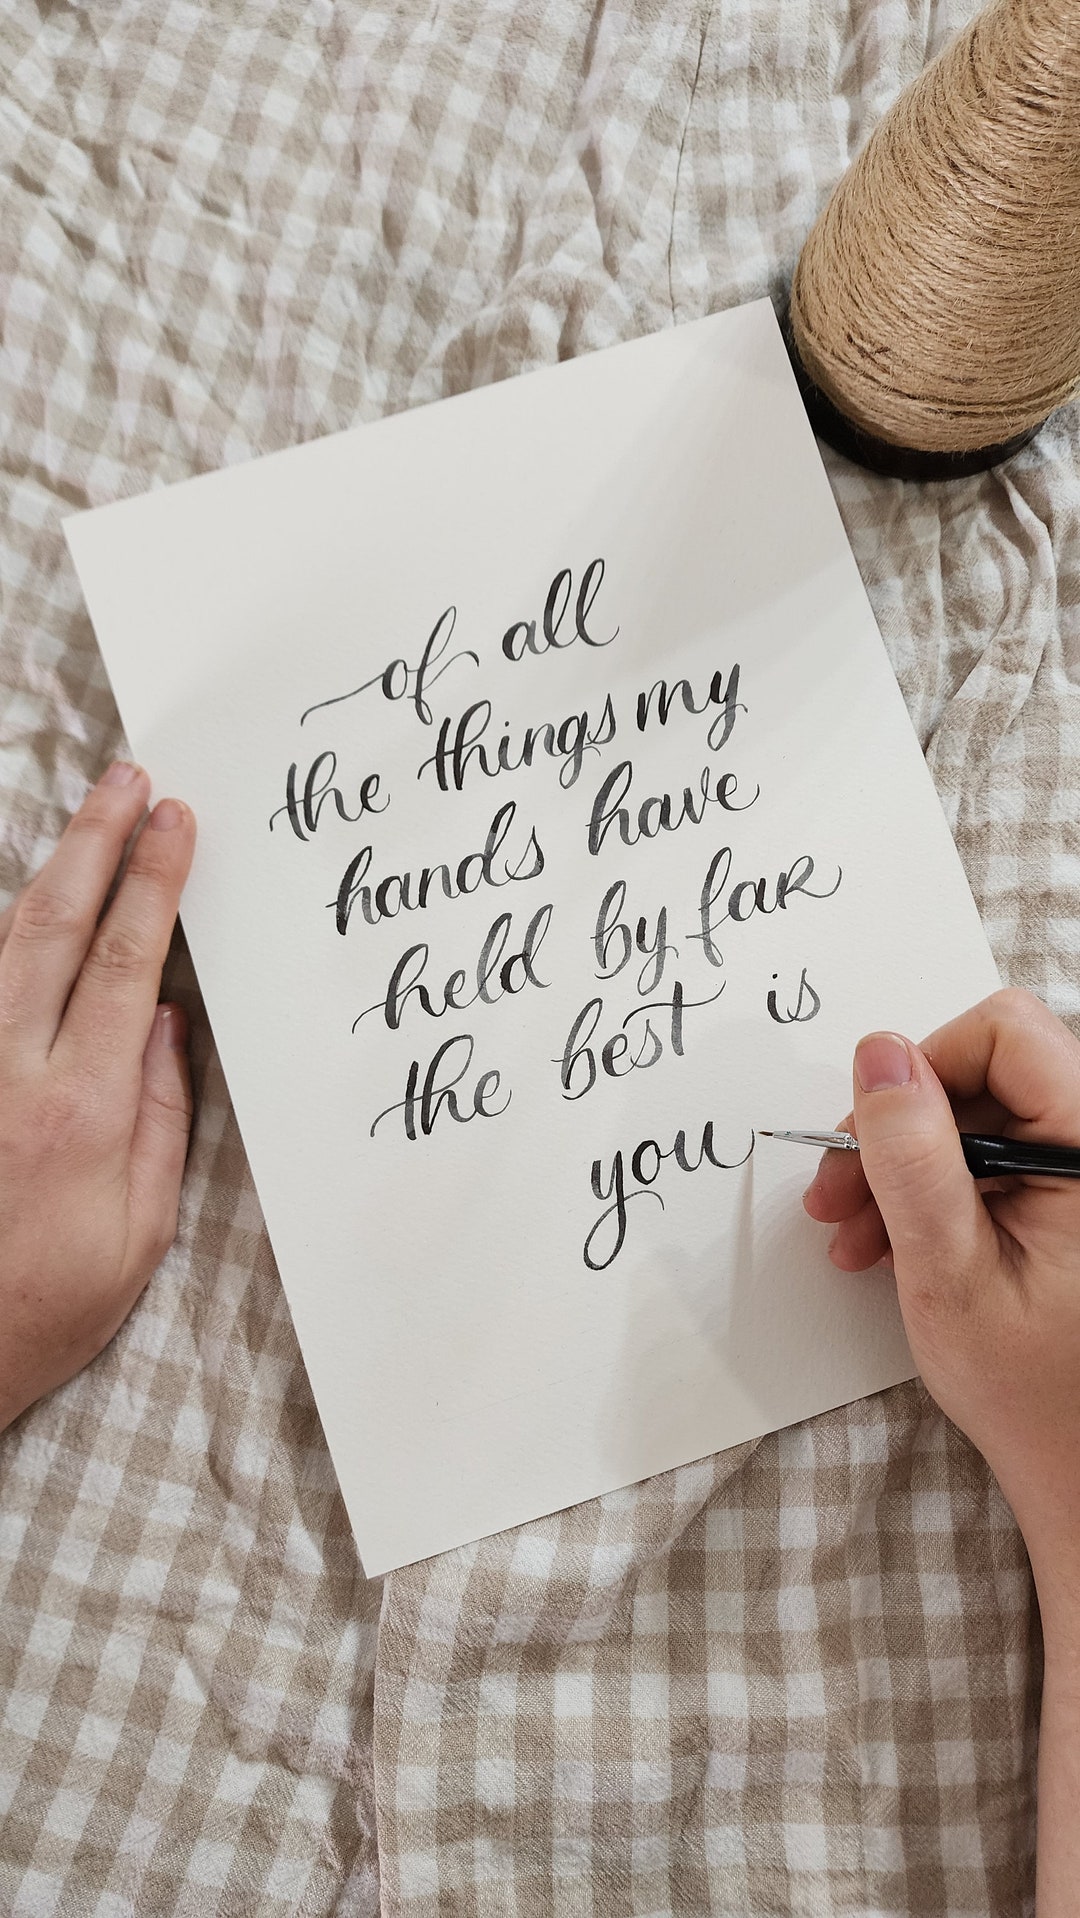 of all
the things my
hands have
held by far
the best is
you